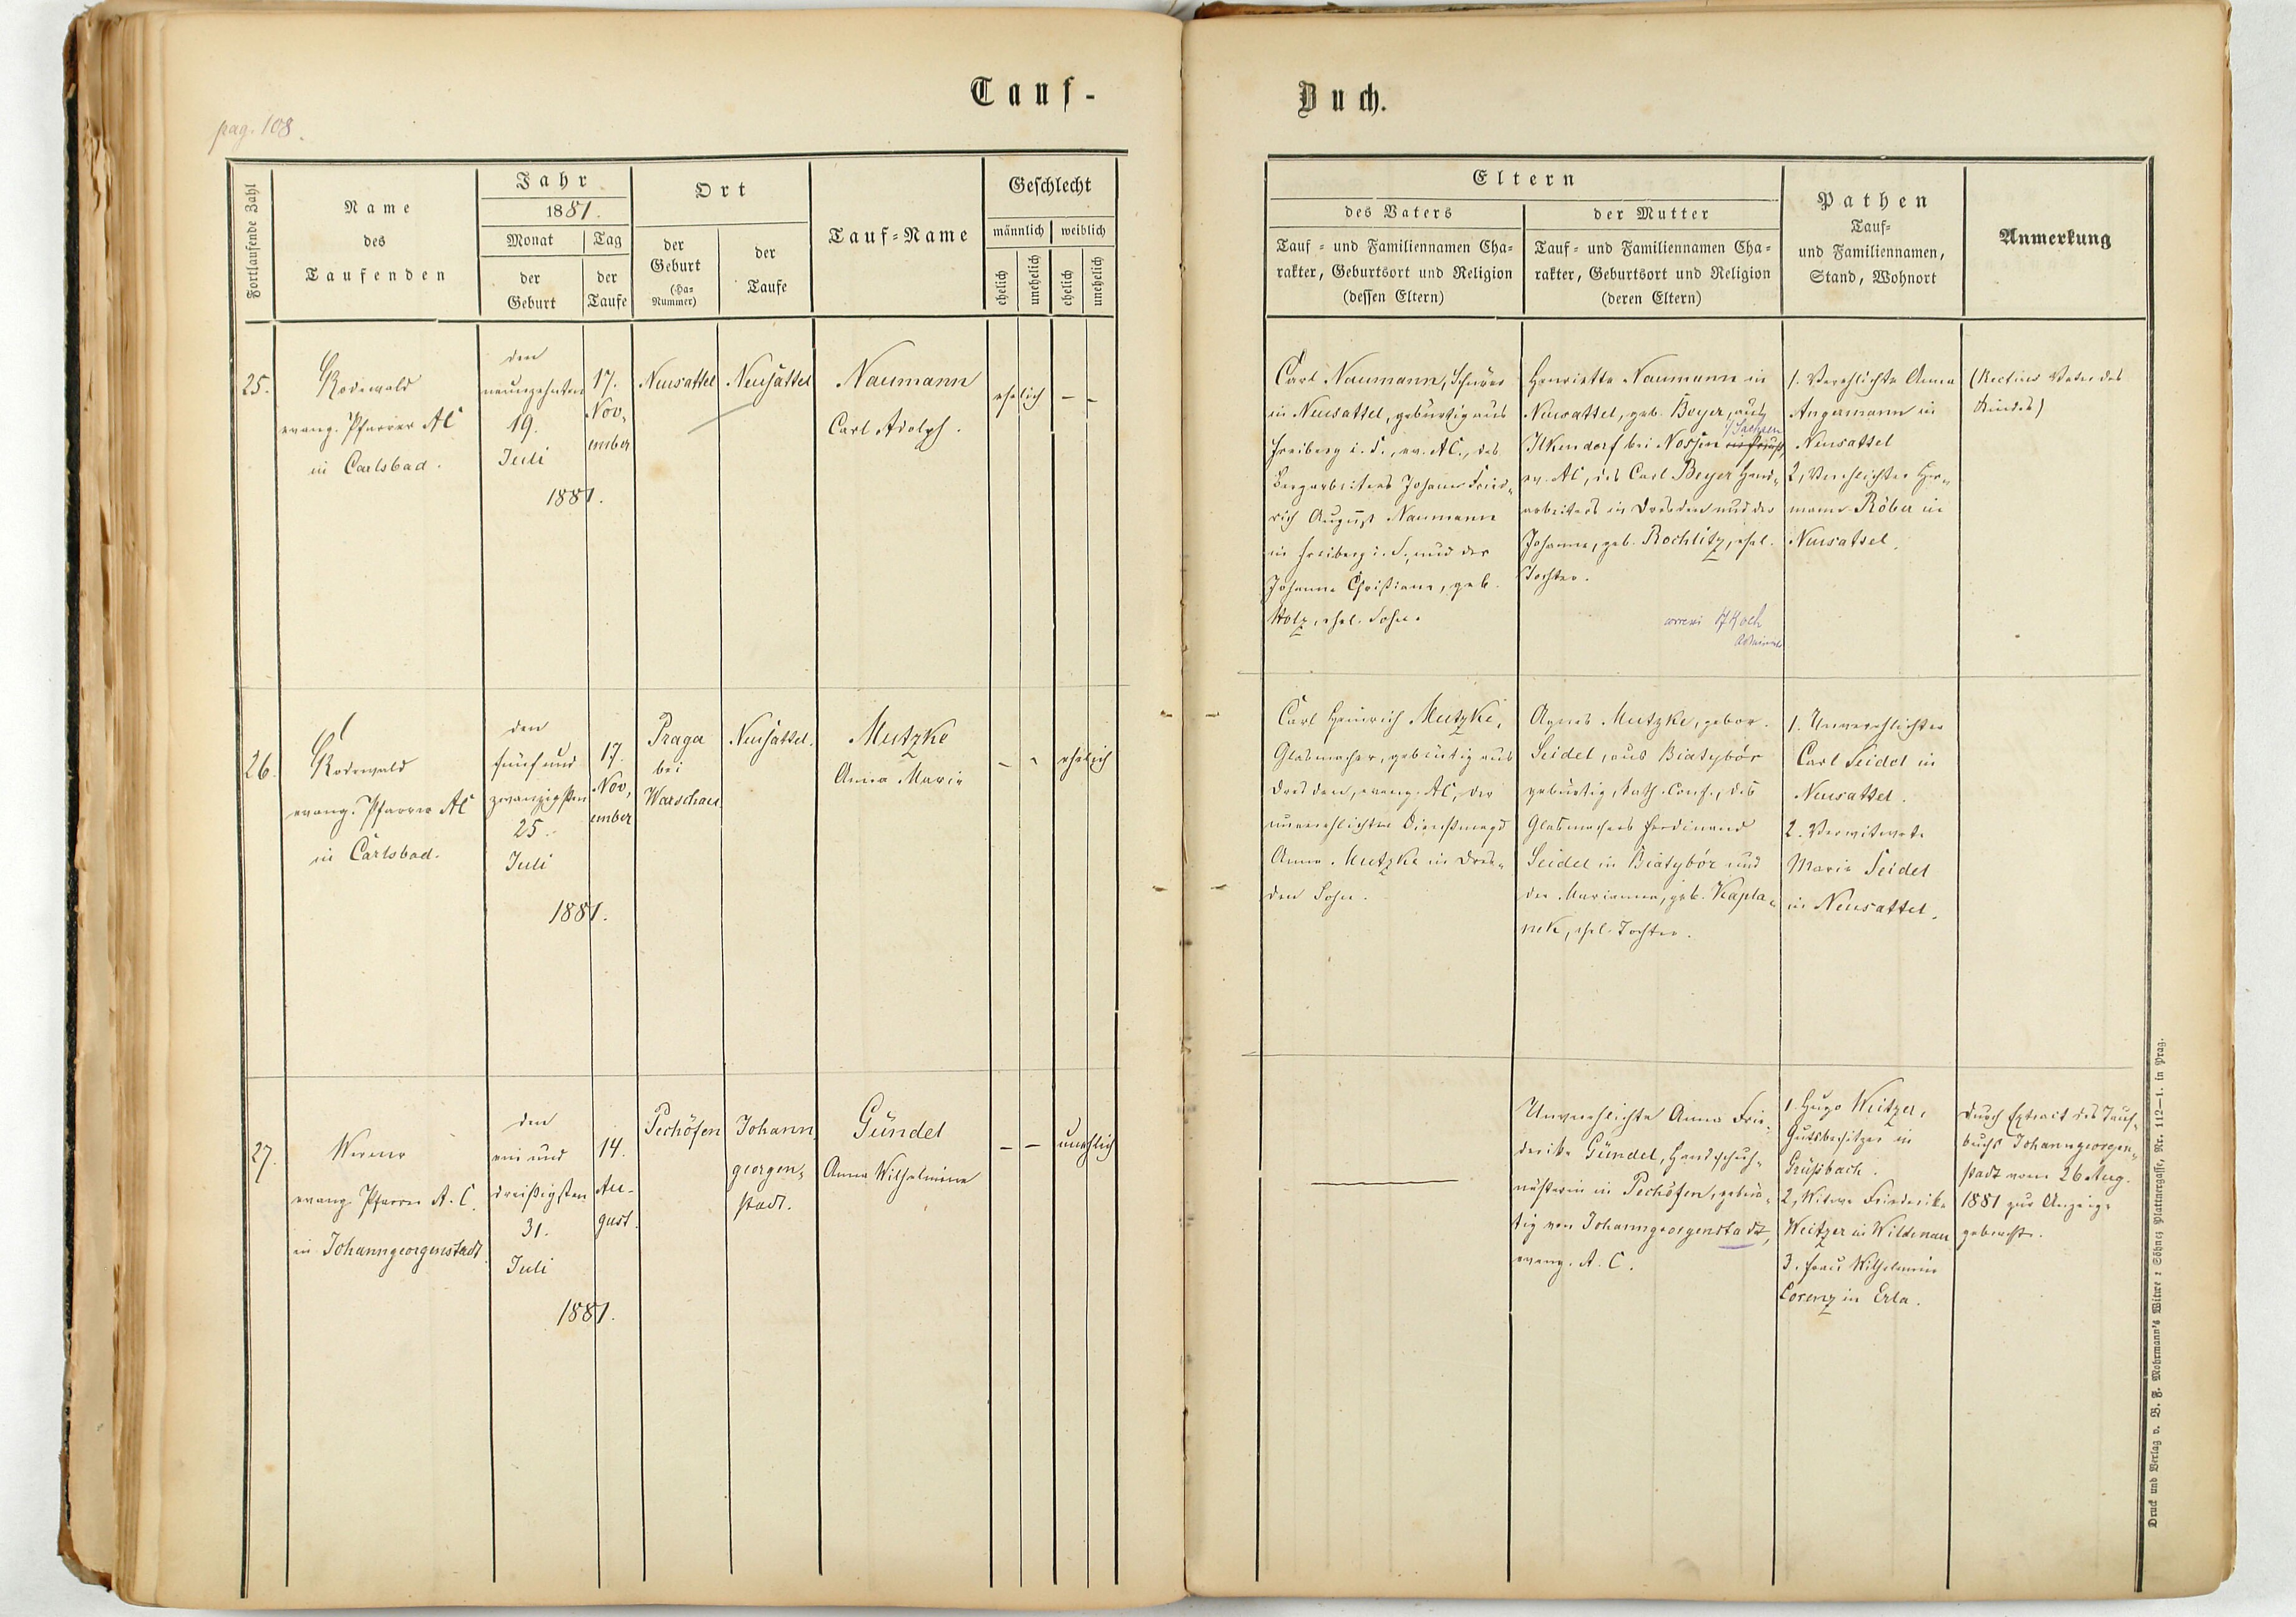 pag. 108.
Tauf-
Buch.
Fortlaufende Zahl
Name
des
Taufenden
Jahr
1881.
Monat
Tag
der
Geburt
der
Taufe
Ort
der
Geburt
(Hs=
Nummer)
der
Taufe
Tauf=Name
Geschlecht
männlich
weiblich
ehelich
unehelich
ehelich
unehelich
Eltern
des Vaters
der Mutter
Tauf = und Familiennamen Cha=
rakter, Geburtsort und Religion
(dessen Eltern)
Tauf = und Familiennamen Cha=
rakter, Geburtsort und Religion
(deren Eltern)
Pathen
Tauf=
und Familiennamen,
Stand, Wohnort
Anmerkung
25.
Rodewald
evang. Pfarrer AC
in Carlsbad.
den
neunzehnten
19.
Juli
1881.
17.
Nov,
ember
Neusattel
Neusattel
Naumann
Carl Adolph.
ehelich
– –
Carl Naumann,
in Neusattel, gebürtig aus
Freiberg i. S., ev. AC., des
Bergarbeiters Johann Fried=
rich August Naumann
in Freiberg i. S., und der
Johanne Christiane, geb.
Wolz, ehel. Sohn.
Henriette Naumann in
Neusattel, geb. Beyer, aus
i/ Sachsen
Ilkendorf bei Nossen
ev. AC, des Carl Beyer Hand=
arbeiters in Dresden und der
Johanne, geb. Rochlitz, ehel.
Tochter.
Koch
1. Verehlichte Anna
Angermann in
Neusattel
2, Verehlichter Her=
mann Röber in
Neusattel.
(Rectius Vater des
Kindes)
26.
Rodewald
evang. Pfarrer AC
in Carlsbad.
den
fünf und
zwanzigsten
25.
Juli
1881.
17.
Nov,
ember
Praga
bei
Warschau
Neusattel.
Mutzke
Anna Marie
– –
ehelich
Carl Heinrich Mutzke,
Glasmacher, gebürtig aus
Dresden, evang. AC, der
unverehlichten Dienstmagd
Anna Mutzke in Dres=
den Sohn.
Agnes Mutzke, gebor.
Seidel, aus Biatybór
gebürtig, kath. Conf., des
Glasmachers Ferdinand
Seidel in Biatybór und
der Marianna, geb. Kapla=
nek, ehel. Tochter.
1. Unverehlichter
Carl Seidel in
Neusattel.
2. Verwitwete
Marie Seidel
in Neusattel.
27.
Werner
evang. Pfarrer A. C.
in Johanngeorgenstadt
den
ein und
dreißigsten
31.
Juli
1881.
14.
Au-
gust.
Pechöfen
Johann,
georgen,
stadt.
Gündel
Anna Wilhelmine
– –
unehlich
Unverehlichte Anna Frie=
derike Gündel, Handschuh=
näherin in Pechöfen, gebür=
tig von Johanngeorgenstadt,
evang. A. C.
1. Hugo Weitzer,
Gutsbesitzer in
Grüßbach.
2, Witwe Friederike
Weitzer in Wildenau
3. Frau Wilhelmine
Lorenz in Erla.
Durch Extract des Tauf=
buchs Johanngeorgen=
stadt vom 26 Aug.
1881 zur Anzeige
gebracht.
Druck und Verlag v. B. F. Mohrmann's Witwe & Söhne, Plattnergasse, Nr. 112—1. in Prag.